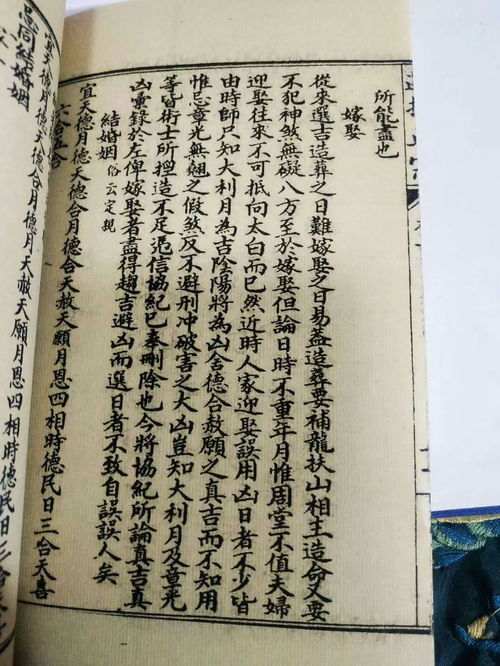 所能盡也
嫁娶
從來選吉造葬之日難嫁娶之日易蓋造葬要補龍扶山相主造命又要
不犯神煞無礙八方至於嫁娶但論日時不重年月惟周堂不值夫婦
迎娶往來不可抵向太白而已然近時人家迎娶誤用凶日者不少皆
由時師只知大利月為吉陰陽將為凶舍德合赦願之真吉而不知用
惟忌章光無翹之假煞反不避刑冲破害之大凶豈知大利月及章光
等皆術士所揑造不足憑信協紀已奉刪除也今將協紀所論真吉真
凶彙錄於左俾嫁娶者盡得趨吉避凶而選日者不致自誤誤人矣
結婚姻 俗云定親
宜天德月德天德合月德合天赦天願月恩四相時德民日三合天喜
六合五合
忌同結婚姻
宜天德月德天德合月德合月天赦天願月恩四相時德民日三合